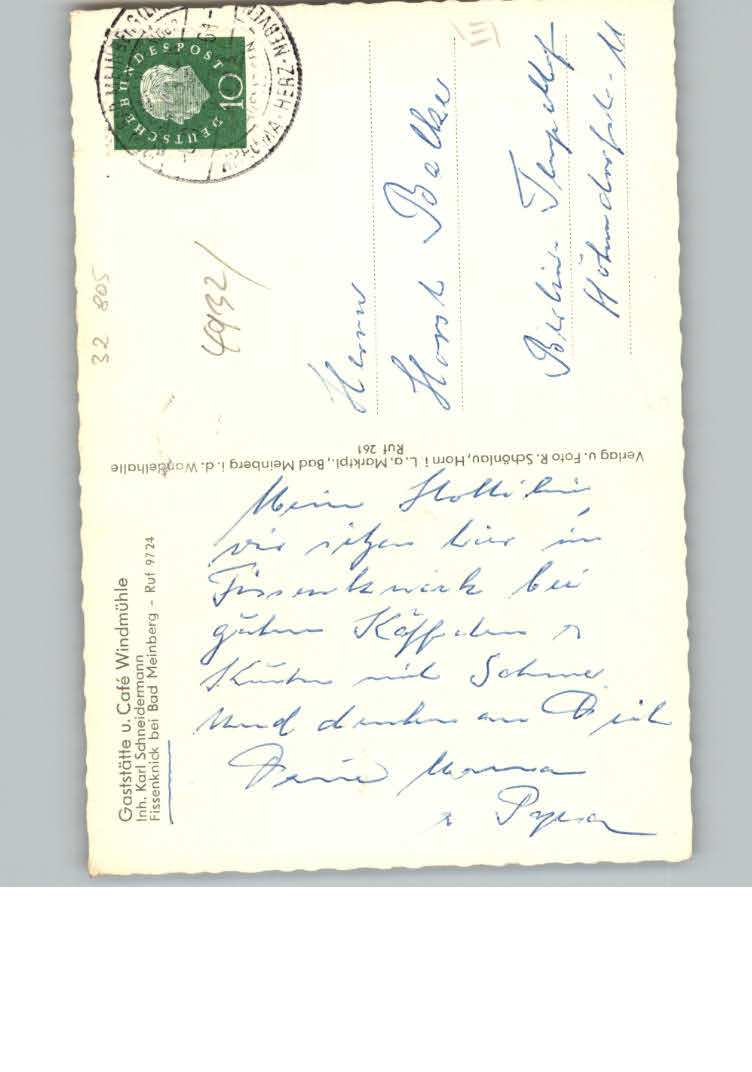 Gaststätte u. Café Windmühle
Inh. Karl Schneidermann
Fissenknick bei Bad Meinberg - Ruf 9724
Mein
wir sitzen hier in
Fissenknick bei
guten Käffchen u
Kuchen mit Sahne
und denken an Dich
Deine Mama
u Papa
Verlag u. Foto R. Schönlau, Horn i. L. a. Marktpl., Bad Meinberg i. d. Wandelhalle
Ruf 261
DEUTSCHE BUNDESPOST
10
HERZ-NERVEN
32 805
4932/
III
Herrn
Horst Balke
Berlin-Tempelhof
11